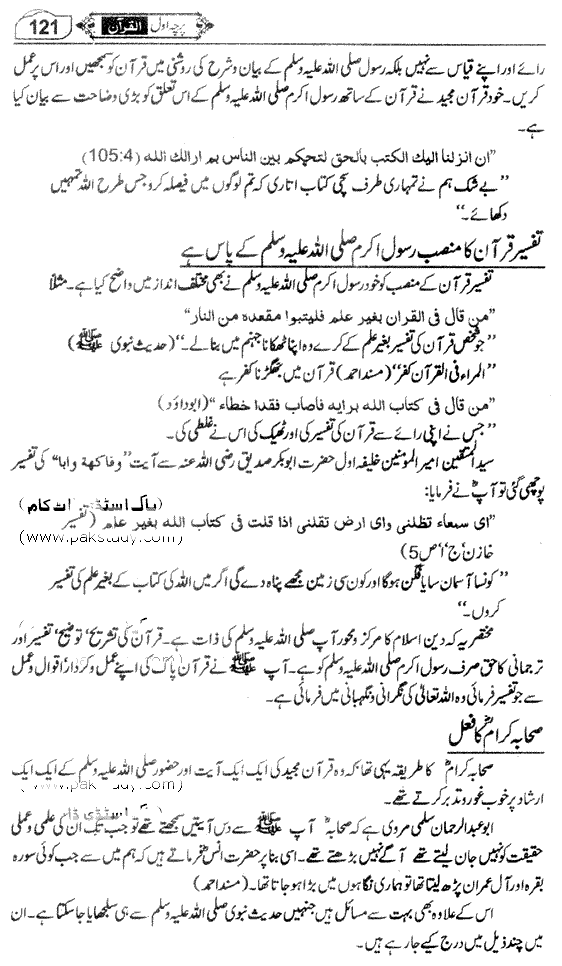 121 القرآن پرچہ اول
رائے اور اپنے قیاس سے نہیں بلکہ رسول صلی اللہ علیہ وسلم کے بیان و شرح کی روشنی میں قرآن کو سمجھیں اور اس پر عمل
کریں۔ خود قرآن مجید نے قرآن کے ساتھ رسول اکرم صلی اللہ علیہ وسلم کے اس تعلق کو بڑی وضاحت سے بیان کیا
ہے۔
”ان انزلنا الیك الكتب بالحق لتحكم بین الناس بم ارالك الله (105:4)
”بے شک ہم نے تمہاری طرف سچی کتاب اتاری کہ تم لوگوں میں فیصلہ کرو جس طرح اللہ تمہیں
دکھائے۔“
تفسیر قرآن کا منصب رسول اکرم صلی اللہ علیہ وسلم کے پاس ہے
تفسیر قرآن کے منصب کو خود رسول اکرم صلی اللہ علیہ وسلم نے بھی مختلف انداز میں واضح کیا ہے۔ مثلاً
”من قال فی القران بغیر علم فلیتبوا مقعده من النار“
”جو شخص قرآن کی تفسیر بغیر علم کے کرے وہ اپنا ٹھکانا جہنم میں بنا لے۔“ (حدیث نبوی ﷺ)
”المراء فی القرآن کفر“ (مسند احمد) قرآن میں جھگڑنا کفر ہے
”من قال فی كتاب الله برایه فاصاب فقدا خطاء“ (ابوداؤد)
”جس نے اپنی رائے سے قرآن کی تفسیر کی اور ٹھیک کی اس نے غلطی کی۔
سید المتقین امیر المومنین خلیفہ اول حضرت ابوبکر صدیق رضی اللہ عنہ سے آیت ”وفاكهة وابا“ کی تفسیر
پوچھی گئی تو آپؓ نے فرمایا:
پاک اسٹڈی ڈاٹ کام
”ای سماء تظلنی وای ارض تقلنی اذا قلت فی كتاب الله بغیر علم (تفسیر
(www.pakstudy.com)
خازن‘ ج‘۱‘ ص5)
”کونسا آسمان سایا فگن ہوگا اور کون سی زمین مجھے پناہ دے گی اگر میں اللہ کی کتاب کے بغیر علم کی تفسیر
کروں۔“
مختصر یہ کہ دین اسلام کا مرکز و محور آپ صلی اللہ علیہ وسلم کی ذات ہے۔ قرآن کی تشریح‘ توضیح‘ تفسیر اور
ترجمانی کا حق صرف رسول اکرم صلی اللہ علیہ وسلم کو ہے۔ آپ ﷺ نے قرآن پاک کی اپنے عمل و کردار‘ اقوال و عمل
سے جو تفسیر فرمائی وہ اللہ تعالیٰ کی نگرانی و نگہبانی میں فرمائی ہے۔
صحابہ کرامؓ کا فعل
صحابہ کرامؓ کا طریقہ یہی تھا کہ وہ قرآن مجید کی ایک ایک آیت اور حضور صلی اللہ علیہ وسلم کے ایک ایک
(www.pakstudy.com)
ارشاد پر خوب غور و تدبر کرتے تھے۔
ابو عبدالرحمان سلمی مروی ہے کہ صحابہؓ آپ ﷺ سے دس آیتیں سیکھتے تھے تو جب تک ان کی علمی و عملی
حقیقت کو نہیں جان لیتے تھے آگے نہیں بڑھتے تھے۔ اسی بنا پر حضرت انسؓ فرماتے ہیں کہ ہم میں سے جب کوئی سورہ
بقرہ اور آل عمران پڑھ لیتا تھا تو ہماری نگاہوں میں بڑا ہو جاتا تھا۔ (مسند احمد)
اس کے علاوہ بھی بہت سے مسائل ہیں جنہیں حدیث نبوی صلی اللہ علیہ وسلم سے ہی سلجھایا جا سکتا ہے۔ ان
میں چند ذیل میں درج کیے جا رہے ہیں۔